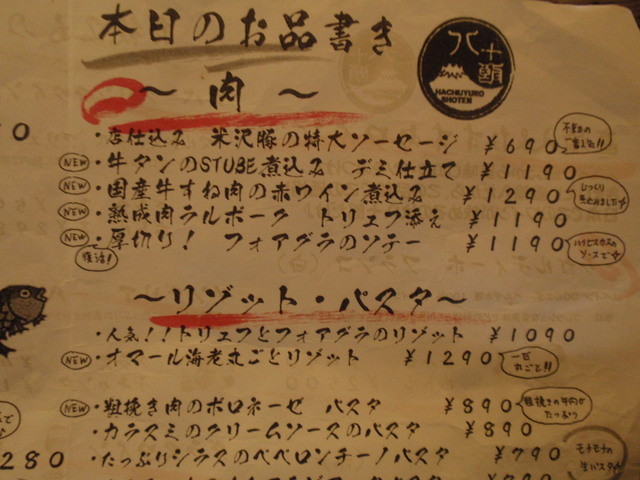 本日のお品書き
八十郎
HACHIJYURO
SHOTEN
～ 肉 ～
・店仕込み 米沢豚の特大ソーセージ ¥690
NEW ・牛タンのSTUBE煮込み デミ仕立て ¥1190
NEW ・国産牛すね肉の赤ワイン煮込み ¥1290
じっくり
煮込みました
NEW ・熟成肉ラルポーク トリュフ添え ¥1190
NEW ・厚切り! フォアグラのソテー ¥1190
復活!
ハイビスカスの
ソースで
～リゾット・パスタ～
・人気!!トリュフとフォアグラのリゾット ¥1090
NEW ・オマール海老丸ごとリゾット ¥1290
一匹
丸ごと!!
NEW ・粗挽き肉のボロネーゼ パスタ ¥890
粗挽きの牛肉が
たっぷり
・カラスミのクリームソースのパスタ ¥890
280 ・たっぷりシラスのペペロンチーノパスタ ¥790
モチモチの
生パスタ